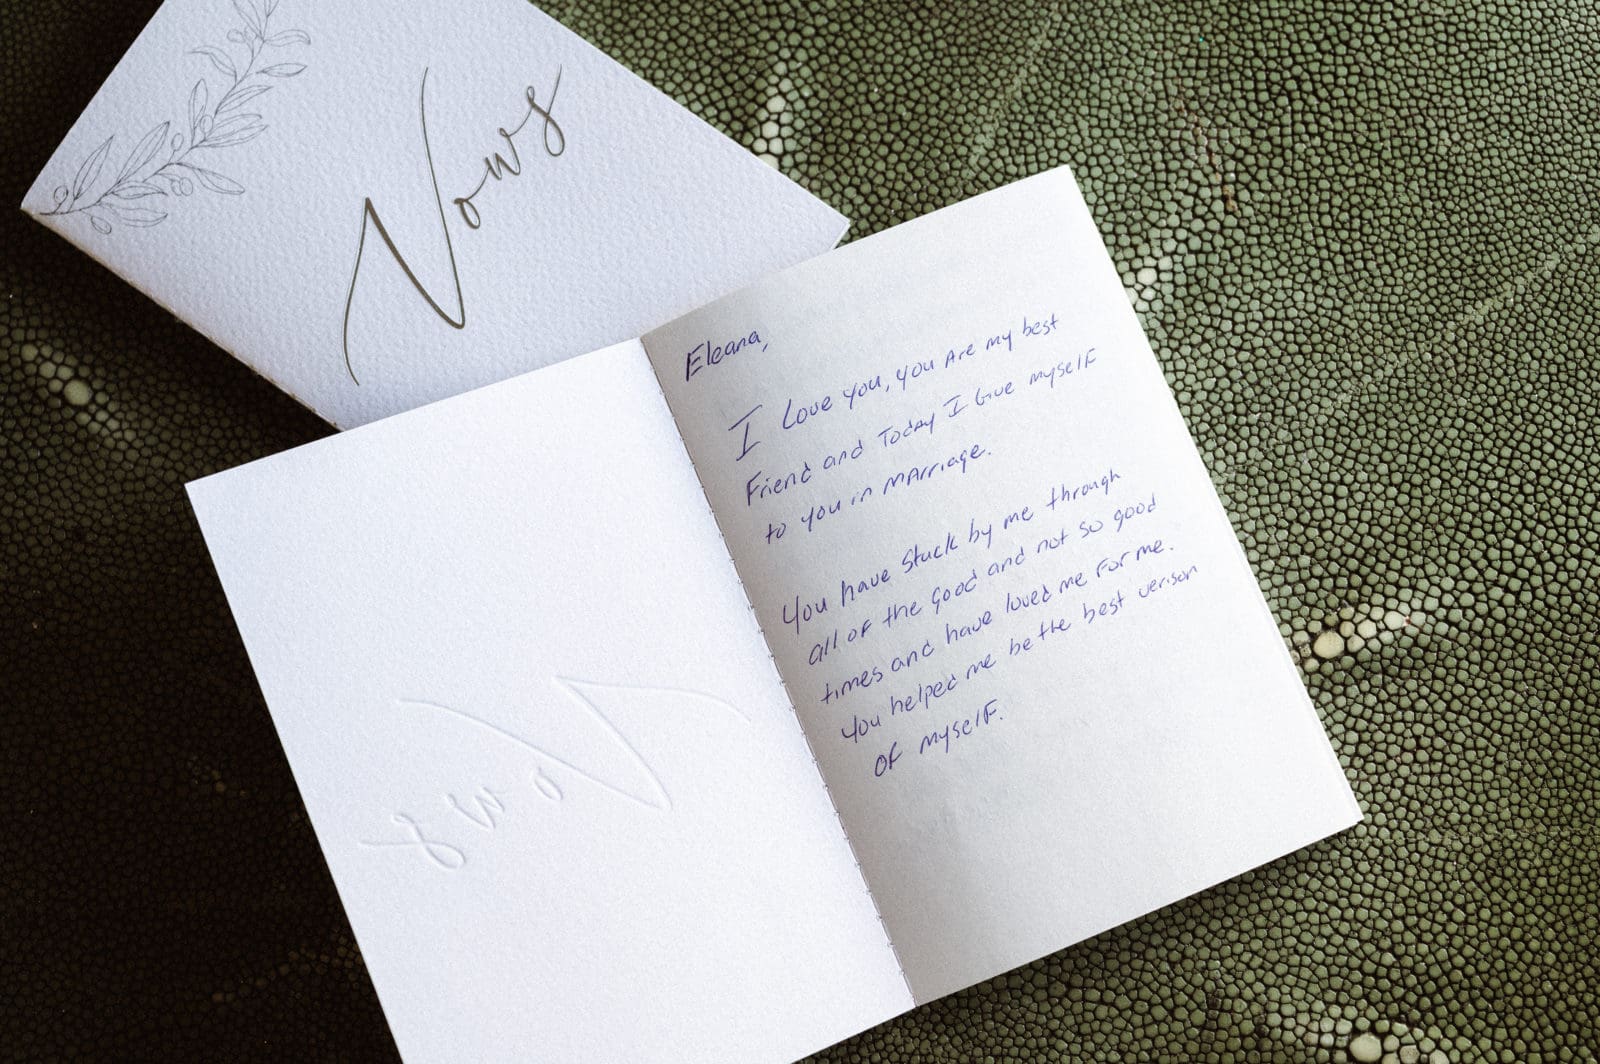 Vows
Eleana,
I Love you, you Are my best
Friend and Today I Give myself
to you in mArriage.
You have Stuck by me through
all of the good and not so good
times and have loved me For me.
You helped me be the best verison
OF myselF.
Vows